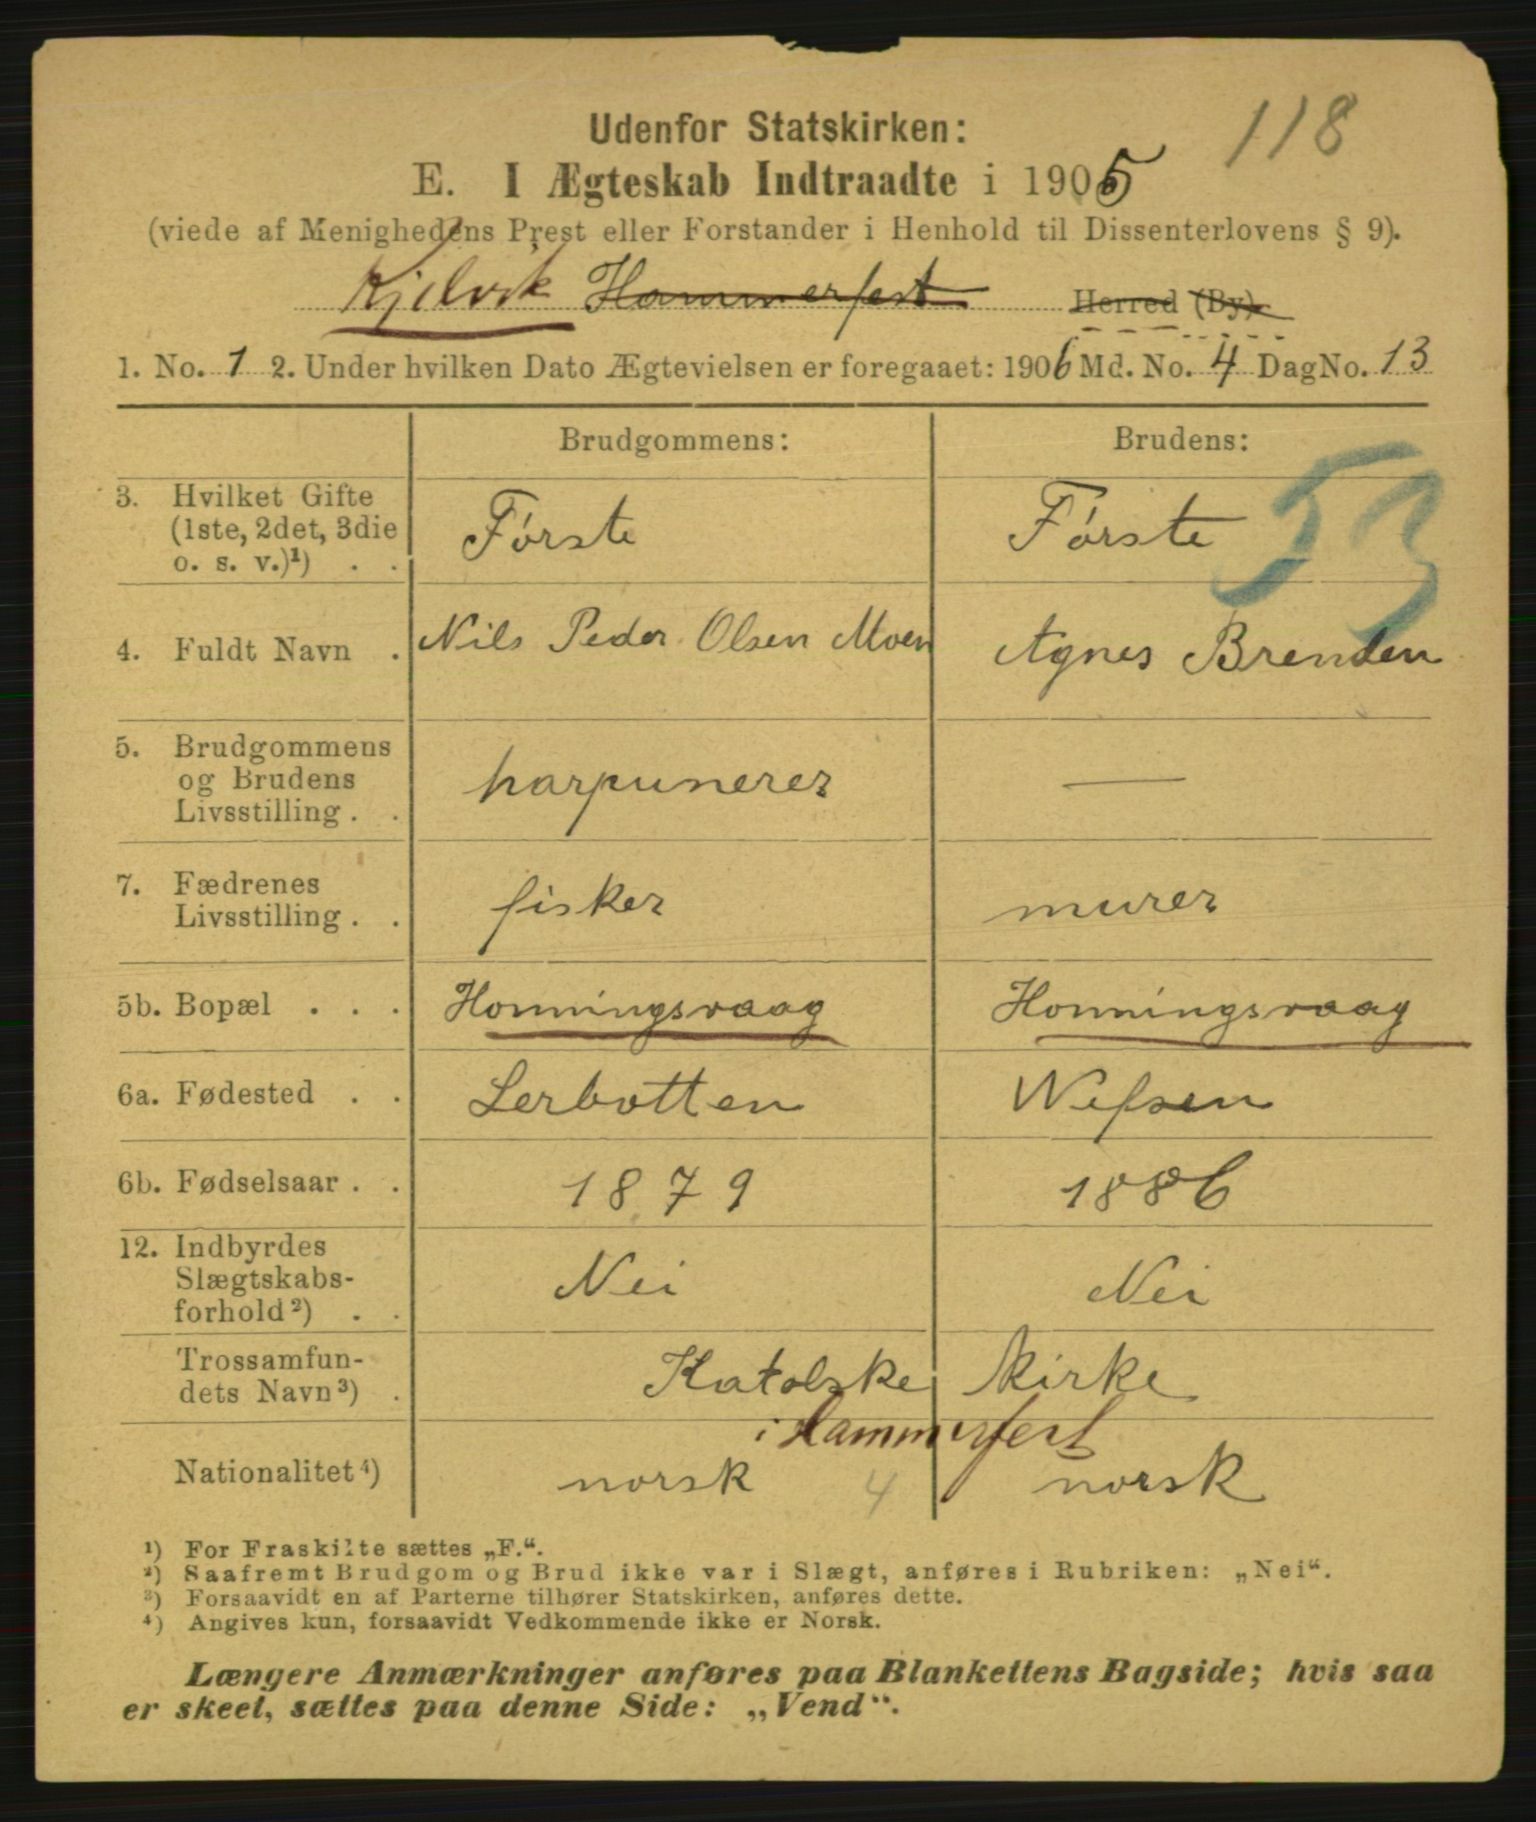 118
Udenfor Statskirken:
E. I Ægteskab Indtraadte i 1905
(viede af Menighedens Prest eller Forstander i Henhold til Dissenterlovens § 9).
Kjelvik Hammerfest Herred (By).
1. No. 1 2. Under hvilken Dato Ægtevielsen er foregaaet: 1906 Md. No. 4 Dag No. 13
Brudgommens: Brudens:
53
3. Hvilket Gifte
(1ste, 2det, 3die
o. s. v.)¹) . .
Første Første
4. Fuldt Navn . Nils Peder Olsen Moen Agnes Brenden
5. Brudgommens
og Brudens
Livsstilling . .
harpunerer —
7. Fædrenes
Livsstilling . .
fisker murer
5b. Bopæl . . . Honningsvaag Honningsvaag
6a. Fødested . . Lerbotten Vefsen
6b. Fødselsaar . . 1879 1886
12. Indbyrdes
Slægtskabs-
forhold²) . .
Nei Nei
Trossamfun-
dets Navn³) .
Katolske kirke
i Hammerfest
Nationalitet⁴) norsk 4 norsk
¹) For Fraskilte sættes „F.“.
²) Saafremt Brudgom og Brud ikke var i Slægt, anføres i Rubriken: „Nei“.
³) Forsaavidt en af Parterne tilhører Statskirken, anføres dette.
⁴) Angives kun, forsaavidt Vedkommende ikke er Norsk.
Længere Anmærkninger anføres paa Blankettens Bagside; hvis saa
er skeet, sættes paa denne Side: „Vend“.